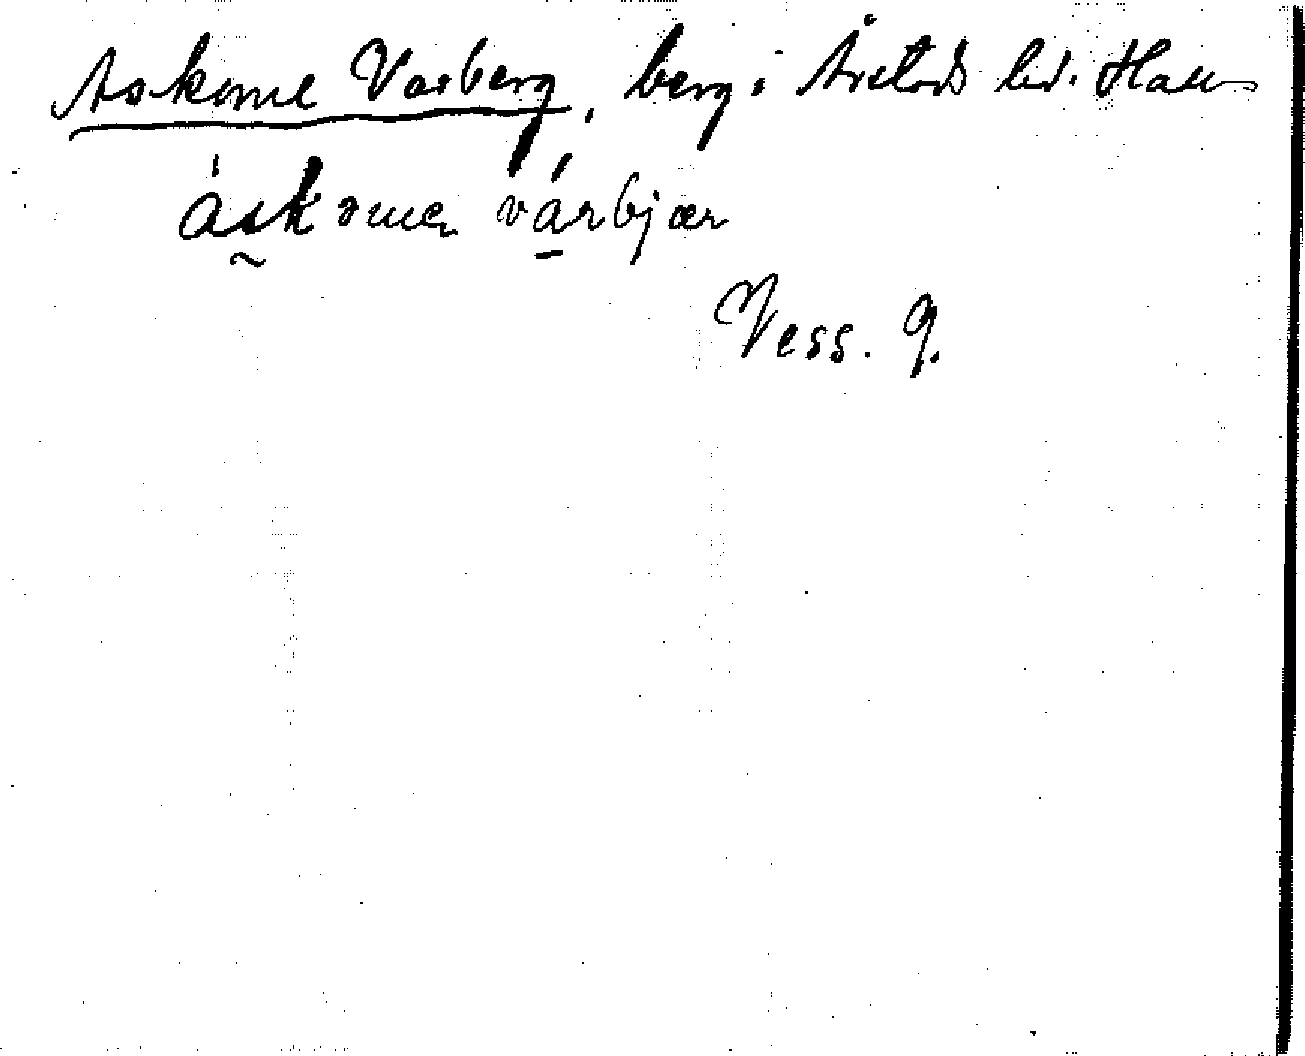 Askome Varberg, berg i Årstads hd. Hall
áskǝmeɹ várbjær
Vess. 9.